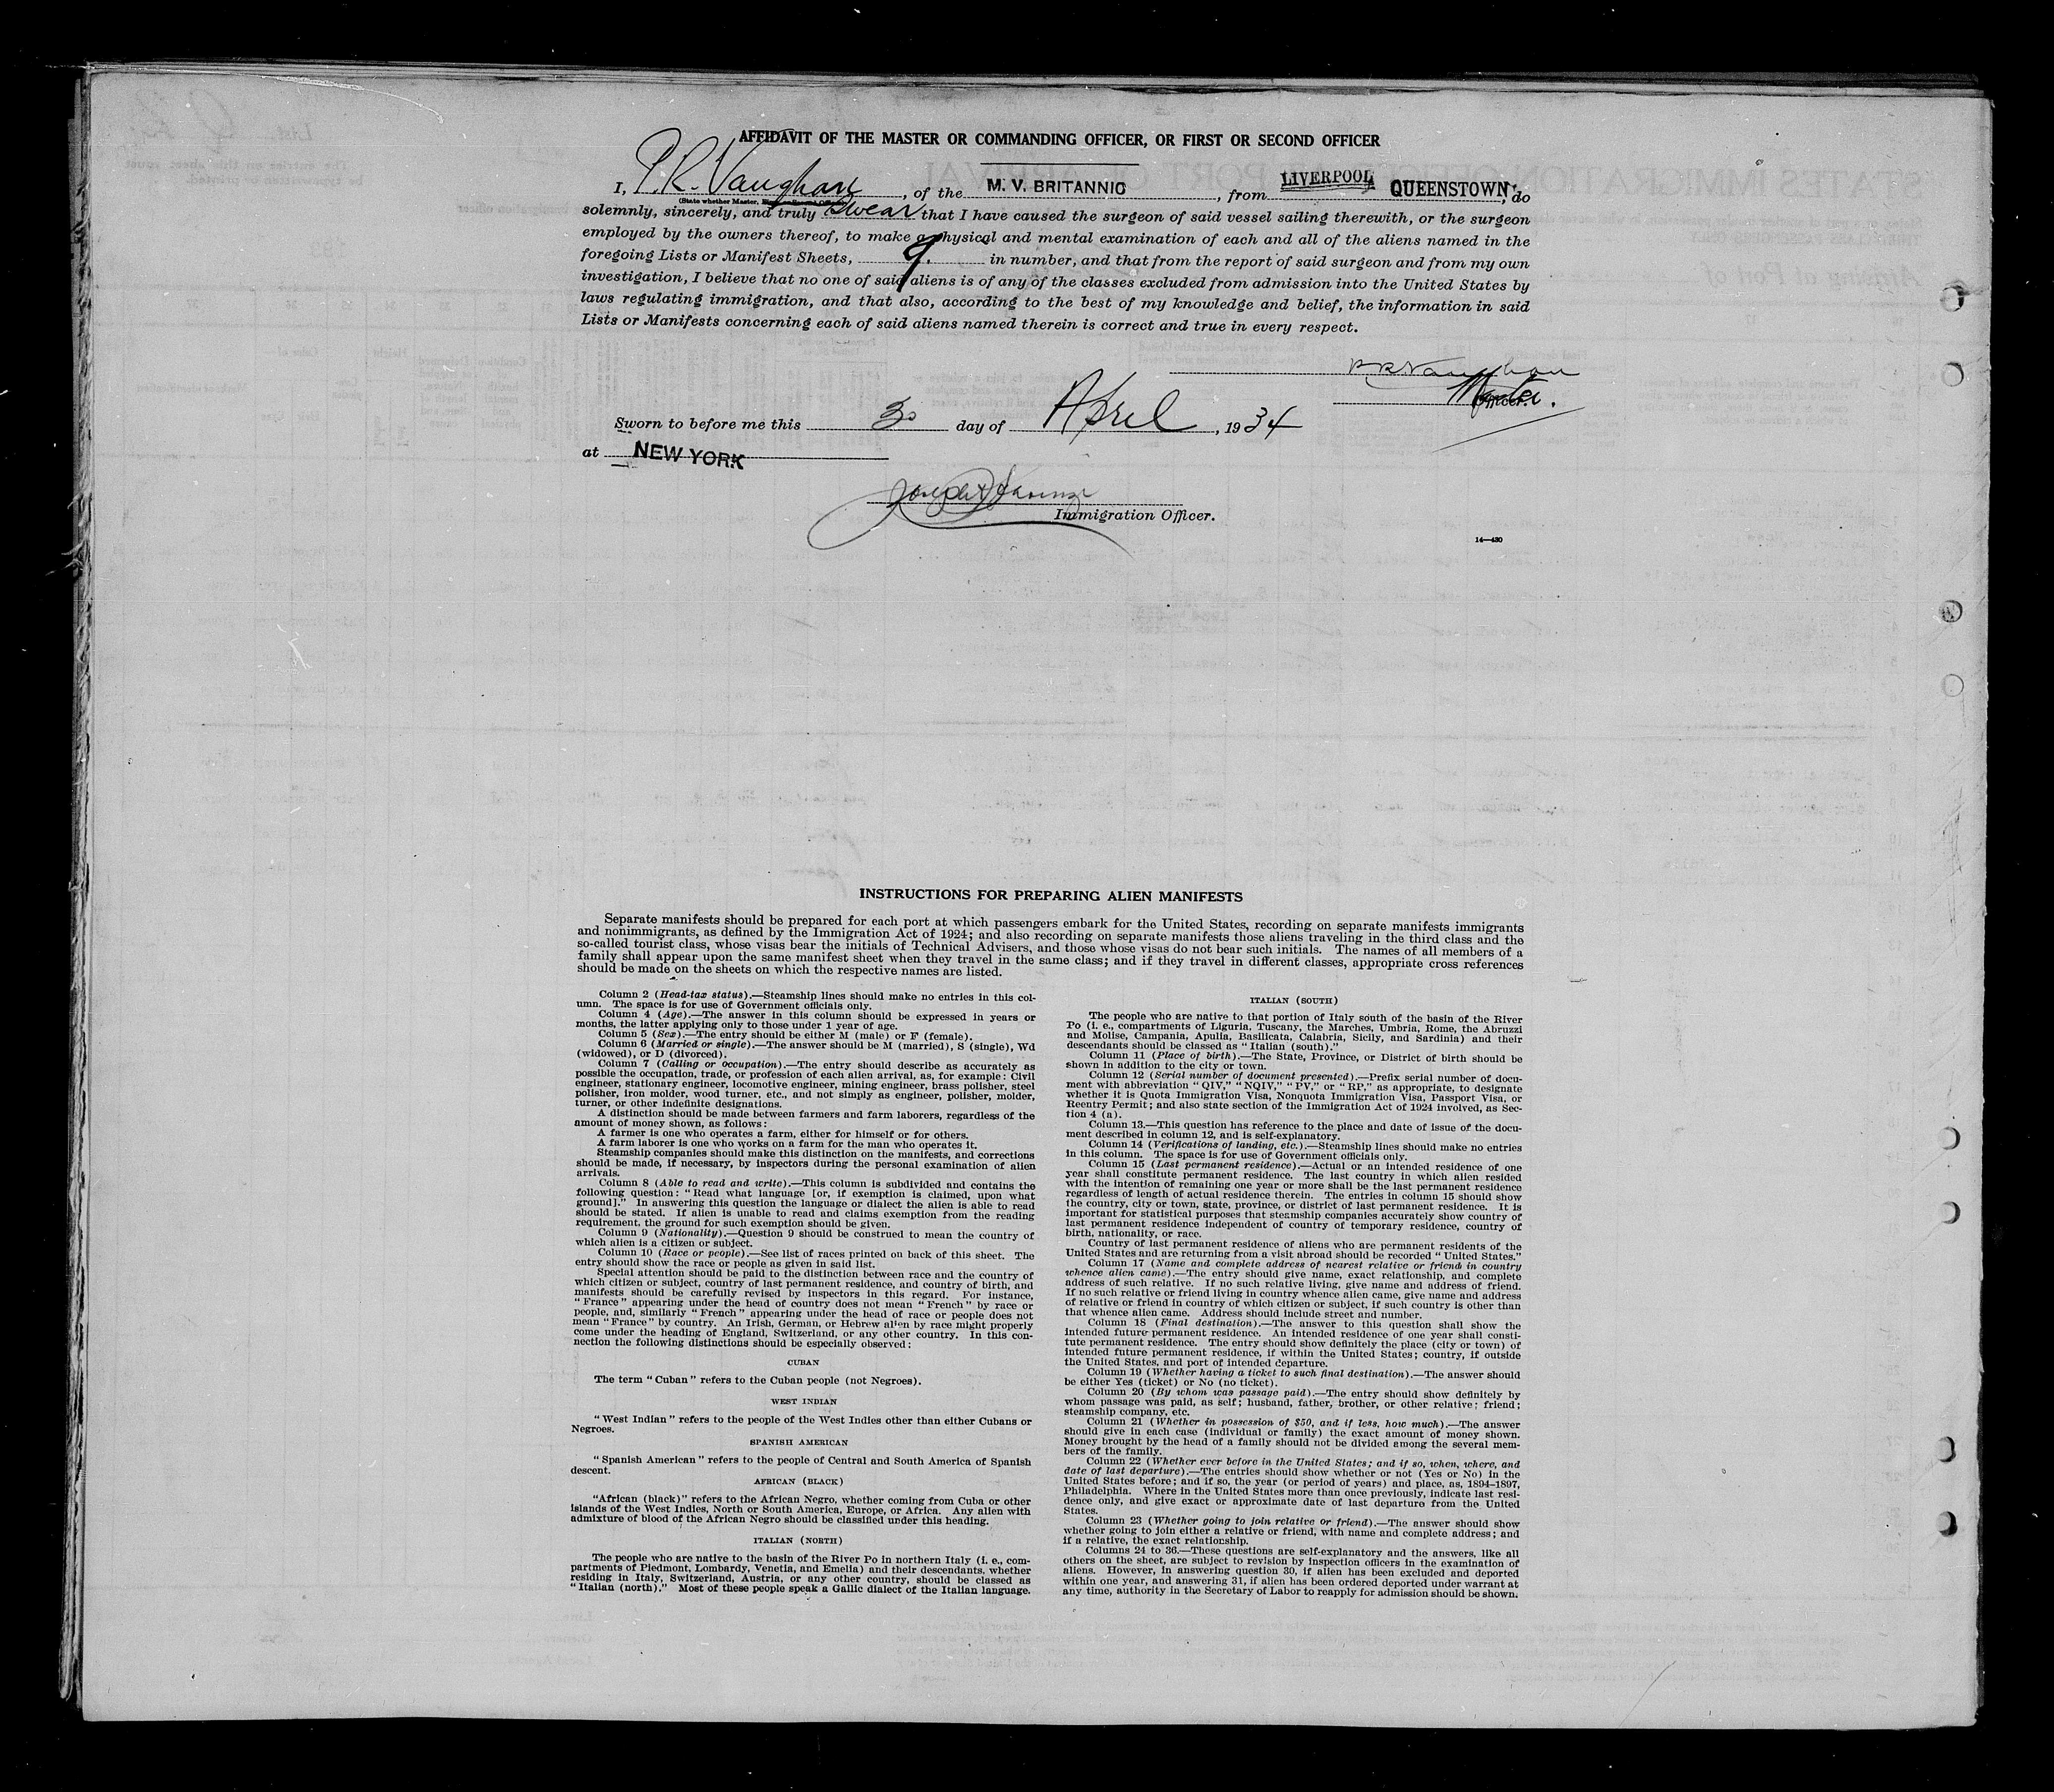 AFFIDAVIT OF THE MASTER OR COMMANDING OFFICER, OR FIRST OR SECOND OFFICER
I, P.R. Vaughan, of the M. V. BRITANNIC, from LIVERPOOL QUEENSTOWN, do
(State whether Master,
solemnly, sincerely, and truly swear that I have caused the surgeon of said vessel sailing therewith, or the surgeon
employed by the owners thereof, to make a physical and mental examination of each and all of the aliens named in the
foregoing Lists or Manifest Sheets, 9. in number, and that from the report of said surgeon and from my own
investigation, I believe that no one of said aliens is of any of the classes excluded from admission into the United States by
laws regulating immigration, and that also, according to the best of my knowledge and belief, the information in said
Lists or Manifests concerning each of said aliens named therein is correct and true in every respect.
PRVaughan
Master.
Officer.
Sworn to before me this 30 day of April, 1934
at NEW YORK
Immigration Officer.
14—430
INSTRUCTIONS FOR PREPARING ALIEN MANIFESTS
Separate manifests should be prepared for each port at which passengers embark for the United States, recording on separate manifests immigrants
and nonimmigrants, as defined by the Immigration Act of 1924; and also recording on separate manifests those aliens traveling in the third class and the
so-called tourist class, whose visas bear the initials of Technical Advisers, and those whose visas do not bear such initials. The names of all members of a
family shall appear upon the same manifest sheet when they travel in the same class; and if they travel in different classes, appropriate cross references
should be made on the sheets on which the respective names are listed.
Column 2 (Head-tax status).—Steamship lines should make no entries in this col-
umn. The space is for use of Government officials only.
Column 4 (Age).—The answer in this column should be expressed in years or
months, the latter applying only to those under 1 year of age.
Column 5 (Sex).—The entry should be either M (male) or F (female).
Column 6 (Married or single).—The answer should be M (married), S (single), Wd
(widowed), or D (divorced).
Column 7 (Calling or occupation).—The entry should describe as accurately as
possible the occupation, trade, or profession of each alien arrival, as, for example: Civil
engineer, stationary engineer, locomotive engineer, mining engineer, brass polisher, steel
polisher, iron molder, wood turner, etc., and not simply as engineer, polisher, molder,
turner, or other indefinite designations.
A distinction should be made between farmers and farm laborers, regardless of the
amount of money shown, as follows:
A farmer is one who operates a farm, either for himself or for others.
A farm laborer is one who works on a farm for the man who operates it.
Steamship companies should make this distinction on the manifests, and corrections
should be made, if necessary, by inspectors during the personal examination of alien
arrivals.
Column 8 (Able to read and write).—This column is subdivided and contains the
following question: "Read what language [or, if exemption is claimed, upon what
ground]." In answering this question the language or dialect the alien is able to read
should be stated. If alien is unable to read and claims exemption from the reading
requirement, the ground for such exemption should be given.
Column 9 (Nationality).—Question 9 should be construed to mean the country of
which alien is a citizen or subject.
Column 10 (Race or people).—See list of races printed on back of this sheet. The
entry should show the race or people as given in said list.
Special attention should be paid to the distinction between race and the country of
which citizen or subject, country of last permanent residence, and country of birth, and
manifests should be carefully revised by inspectors in this regard. For instance,
"France" appearing under the head of country does not mean "French" by race or
people, and, similarly "French" appearing under the head of race or people does not
mean "France" by country. An Irish, German, or Hebrew alien by race might properly
come under the heading of England, Switzerland, or any other country. In this con-
nection the following distinctions should be especially observed:
CUBAN
The term "Cuban" refers to the Cuban people (not Negroes).
WEST INDIAN
"West Indian" refers to the people of the West Indies other than either Cubans or
Negroes.
SPANISH AMERICAN
"Spanish American" refers to the people of Central and South America of Spanish
descent.
AFRICAN (BLACK)
"African (black)" refers to the African Negro, whether coming from Cuba or other
islands of the West Indies, North or South America, Europe, or Africa. Any alien with
admixture of blood of the African Negro should be classified under this heading.
ITALIAN (NORTH)
The people who are native to the basin of the River Po in northern Italy (i. e., com-
partments of Piedmont, Lombardy, Venetia, and Emelia) and their descendants, whether
residing in Italy, Switzerland, Austria, or any other country, should be classed as
"Italian (north)." Most of these people speak a Gallic dialect of the Italian language.
ITALIAN (SOUTH)
The people who are native to that portion of Italy south of the basin of the River
Po (i. e., compartments of Liguria, Tuscany, the Marches, Umbria, Rome, the Abruzzi
and Molise, Campania, Apulia, Basilicata, Calabria, Sicily, and Sardinia) and their
descendants should be classed as "Italian (south)."
Column 11 (Place of birth).—The State, Province, or District of birth should be
shown in addition to the city or town.
Column 12 (Serial number of document presented).—Prefix serial number of docu-
ment with abbreviation "QIV," "NQIV," "PV," or "RP," as appropriate, to designate
whether it is Quota Immigration Visa, Nonquota Immigration Visa, Passport Visa, or
Reentry Permit; and also state section of the Immigration Act of 1924 involved, as Sec-
tion 4 (a).
Column 13.—This question has reference to the place and date of issue of the docu-
ment described in column 12, and is self-explanatory.
Column 14 (Verifications of landing, etc.).—Steamship lines should make no entries
in this column. The space is for use of Government officials only.
Column 15 (Last permanent residence).—Actual or an intended residence of one
year shall constitute permanent residence. The last country in which alien resided
with the intention of remaining one year or more shall be the last permanent residence
regardless of length of actual residence therein. The entries in column 15 should show
the country, city or town, state, province, or district of last permanent residence. It is
important for statistical purposes that steamship companies accurately show country of
last permanent residence independent of country of temporary residence, country of
birth, nationality, or race.
Country of last permanent residence of aliens who are permanent residents of the
United States and are returning from a visit abroad should be recorded "United States."
Column 17 (Name and complete address of nearest relative or friend in country
whence alien came).—The entry should give name, exact relationship, and complete
address of such relative. If no such relative living, give name and address of friend.
If no such relative or friend living in country whence alien came, give name and address
of relative or friend in country of which citizen or subject, if such country is other than
that whence alien came. Address should include street and number.
Column 18 (Final destination).—The answer to this question shall show the
intended future permanent residence. An intended residence of one year shall consti-
tute permanent residence. The entry should show definitely the place (city or town) of
intended future permanent residence, if within the United States; country, if outside
the United States, and port of intended departure.
Column 19 (Whether having a ticket to such final destination).—The answer should
be either Yes (ticket) or No (no ticket).
Column 20 (By whom was passage paid).—The entry should show definitely by
whom passage was paid, as self; husband, father, brother, or other relative; friend;
steamship company, etc.
Column 21 (Whether in possession of $50, and if less, how much).—The answer
should give in each case (individual or family) the exact amount of money shown.
Money brought by the head of a family should not be divided among the several mem-
bers of the family.
Column 22 (Whether ever before in the United States; and if so, when, where, and
date of last departure).—The entries should show whether or not (Yes or No) in the
United States before; and if so, the year (or period of years) and place, as, 1894–1897,
Philadelphia. Where in the United States more than once previously, indicate last resi-
dence only, and give exact or approximate date of last departure from the United
States.
Column 23 (Whether going to join relative or friend).—The answer should show
whether going to join either a relative or friend, with name and complete address; and
if a relative, the exact relationship.
Columns 24 to 36.—These questions are self-explanatory and the answers, like all
others on the sheet, are subject to revision by inspection officers in the examination of
aliens. However, in answering question 30, if alien has been excluded and deported
within one year, and answering 31, if alien has been ordered deported under warrant at
any time, authority in the Secretary of Labor to reapply for admission should be shown.